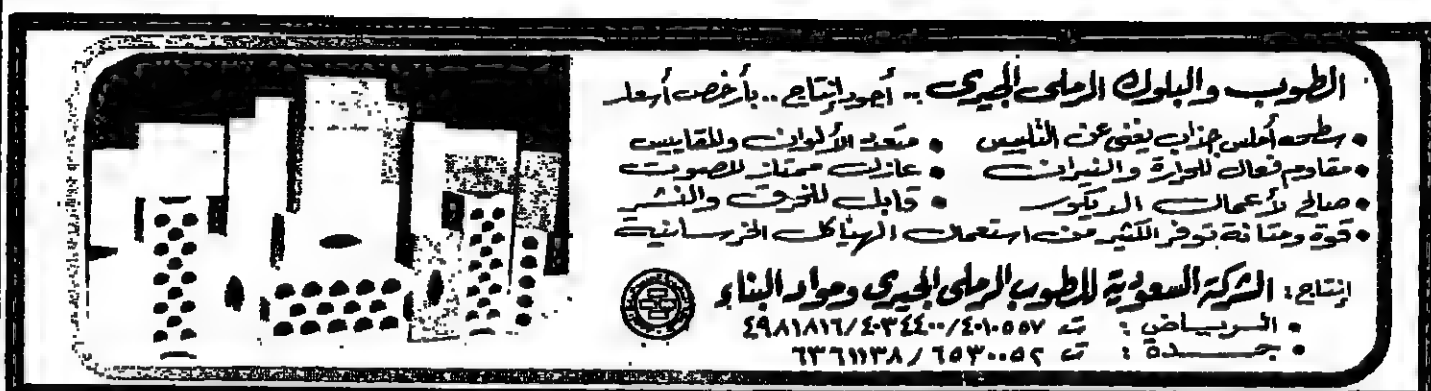 الطوب والبلوك الرملى الجيرى .. أجود إنتاج .. بأرخص أسعار
• سطحه أملس جذاب يغنى عن التلييس • متعدد الألوان والمقاييس
• مقاوم فعال للحرارة والنيران • عازل ممتاز للصوت
• صالح لأعمال الديكور • قابل للخرق والنشر
• قوة ومتانة توفر الكثير من استعمال الهياكل الخرسانية
إنتاج: الشركة السعودية للطوب الرملى الجيرى ومواد البناء
• الرياض : ت ٤٠١٠٥٥٧/٤٠٣٤٤٠٠/٤٩٨١٨١٦
• جدة : ت ٦٥٣٠٠٥٢ / ٦٣٦١١٣٨